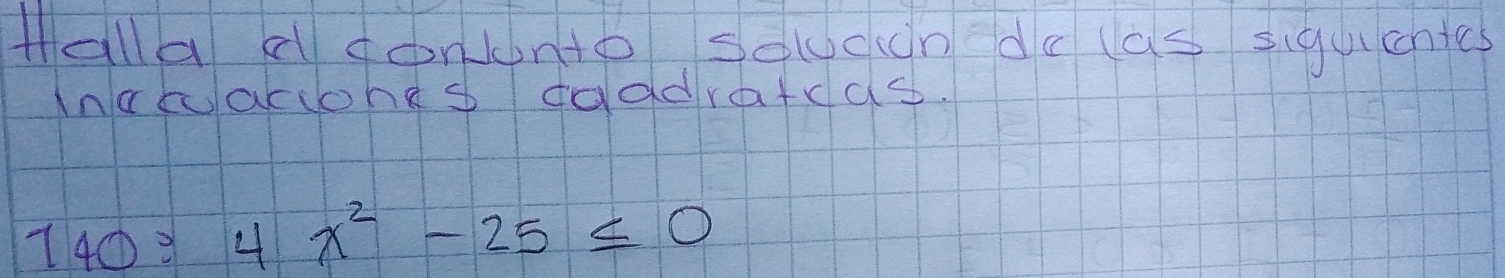 Halla el conjunto solución de las siguientes
inecuaciones cuadraticas.
140: 4 x² - 25 ≤ 0